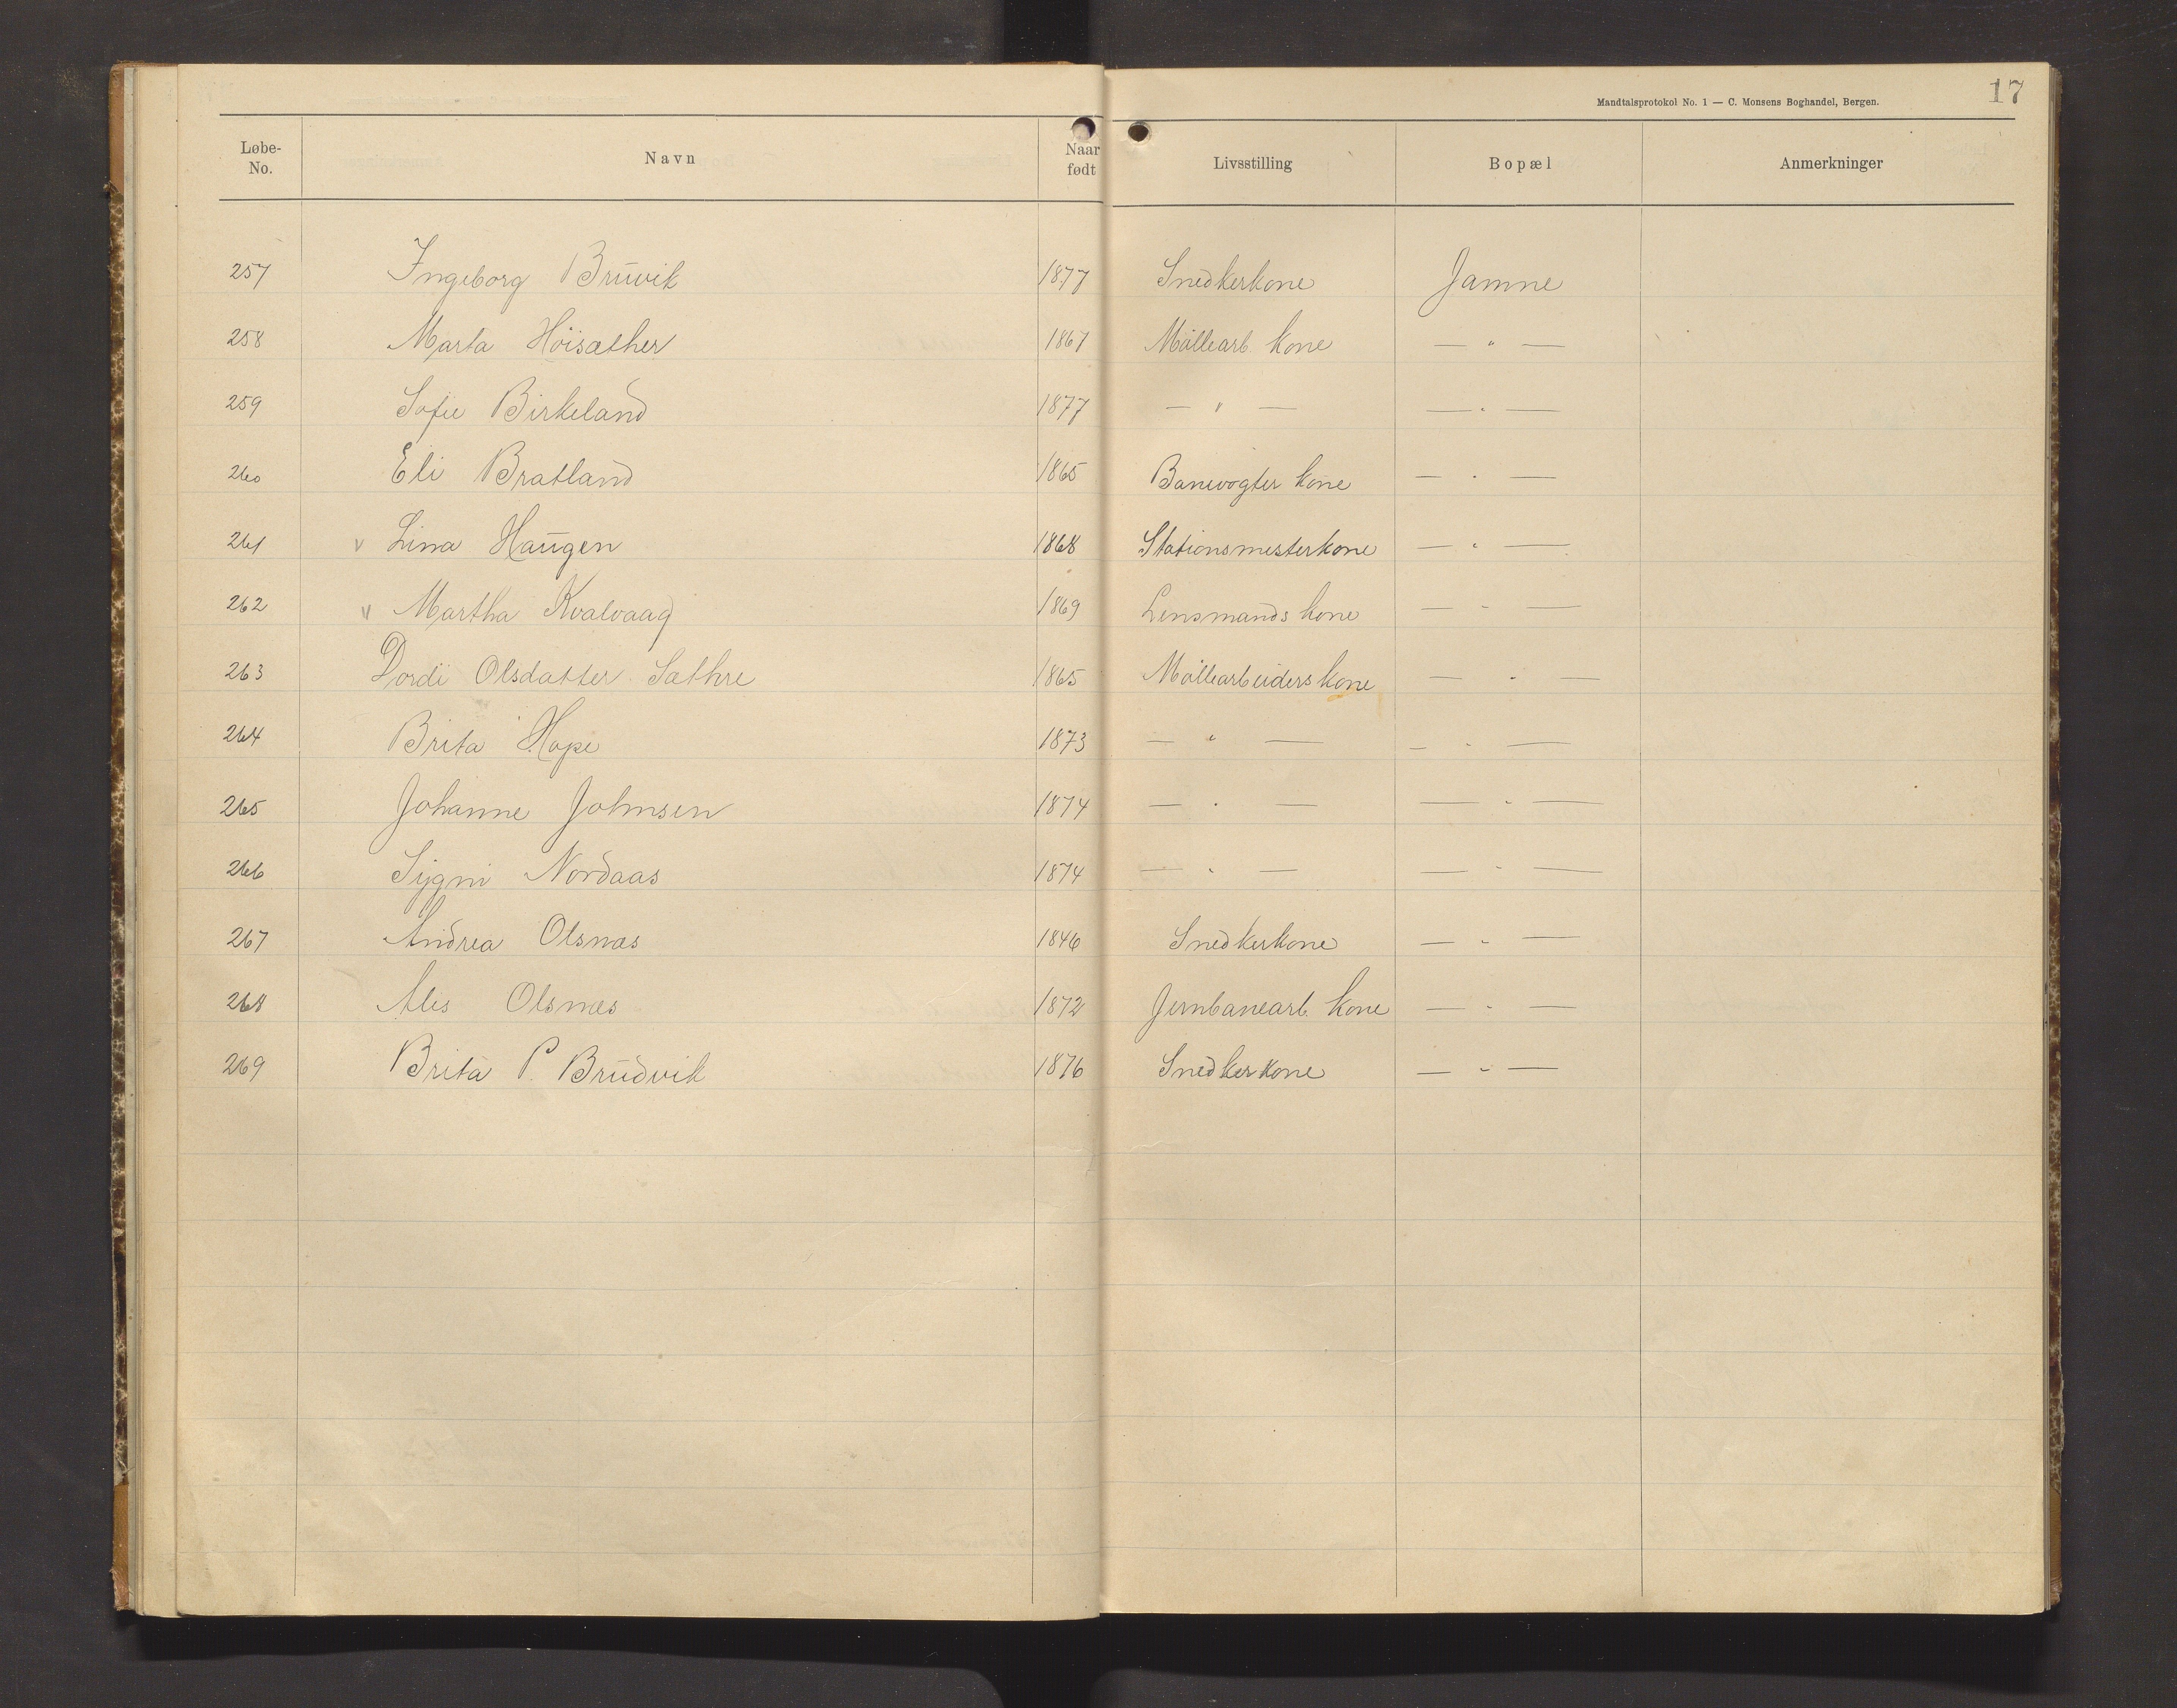 Mandtalsprotokol No. 1 — C. Monsens Boghandel, Bergen. 17
Løbe-No. Navn Naar født Livsstilling Bopæl Anmerkninger
257 Ingeborg Bruvik 1877 Snedkerkone Jamne
258 Marta Höisæther 1867 Möllearb. kone — " —
259 Sofie Birkeland 1877 — " — — " —
260 Eli Bratland 1865 Banevogter kone — " —
261 v Lina Haugen 1868 Stationsmesterkone — " —
262 v Martha Kvalvaag 1869 Lensmands kone — " —
263 Dordi Olsdatter Sæthre 1865 Möllearbeiders kone — " —
264 Brita Hope 1873 — " — — " —
265 Johanne Johnsen 1874 — " — — " —
266 Sygni Nordaas 1874 — " — — " —
267 Andrea Olsnæs 1846 Snedkerkone — " —
268 Ales Olsnæs 1872 Jernbanearb. kone — " —
269 Brita P. Brudvik 1876 Snedkerkone — " —